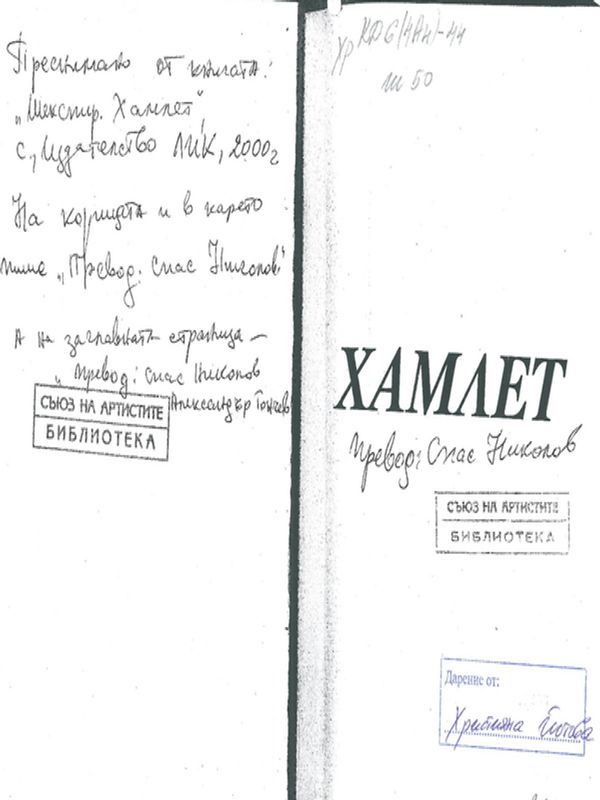 Преснимано от книгата:
„Шекспир. Хамлет“,
с., Издателство ЛИК, 2000г
На корицата и в карето
пише „Превод: Спас Николов“
А на заглавната страница –
„Превод: Спас Николов
Александър Гончев
СЪЮЗ НА АРТИСТИТЕ
БИБЛИОТЕКА
Хр КП6(4Ан)-44
Ш 50
ХАМЛЕТ
Превод: Спас Николов
СЪЮЗ НА АРТИСТИТЕ
БИБЛИОТЕКА
Дарение от:
Християна